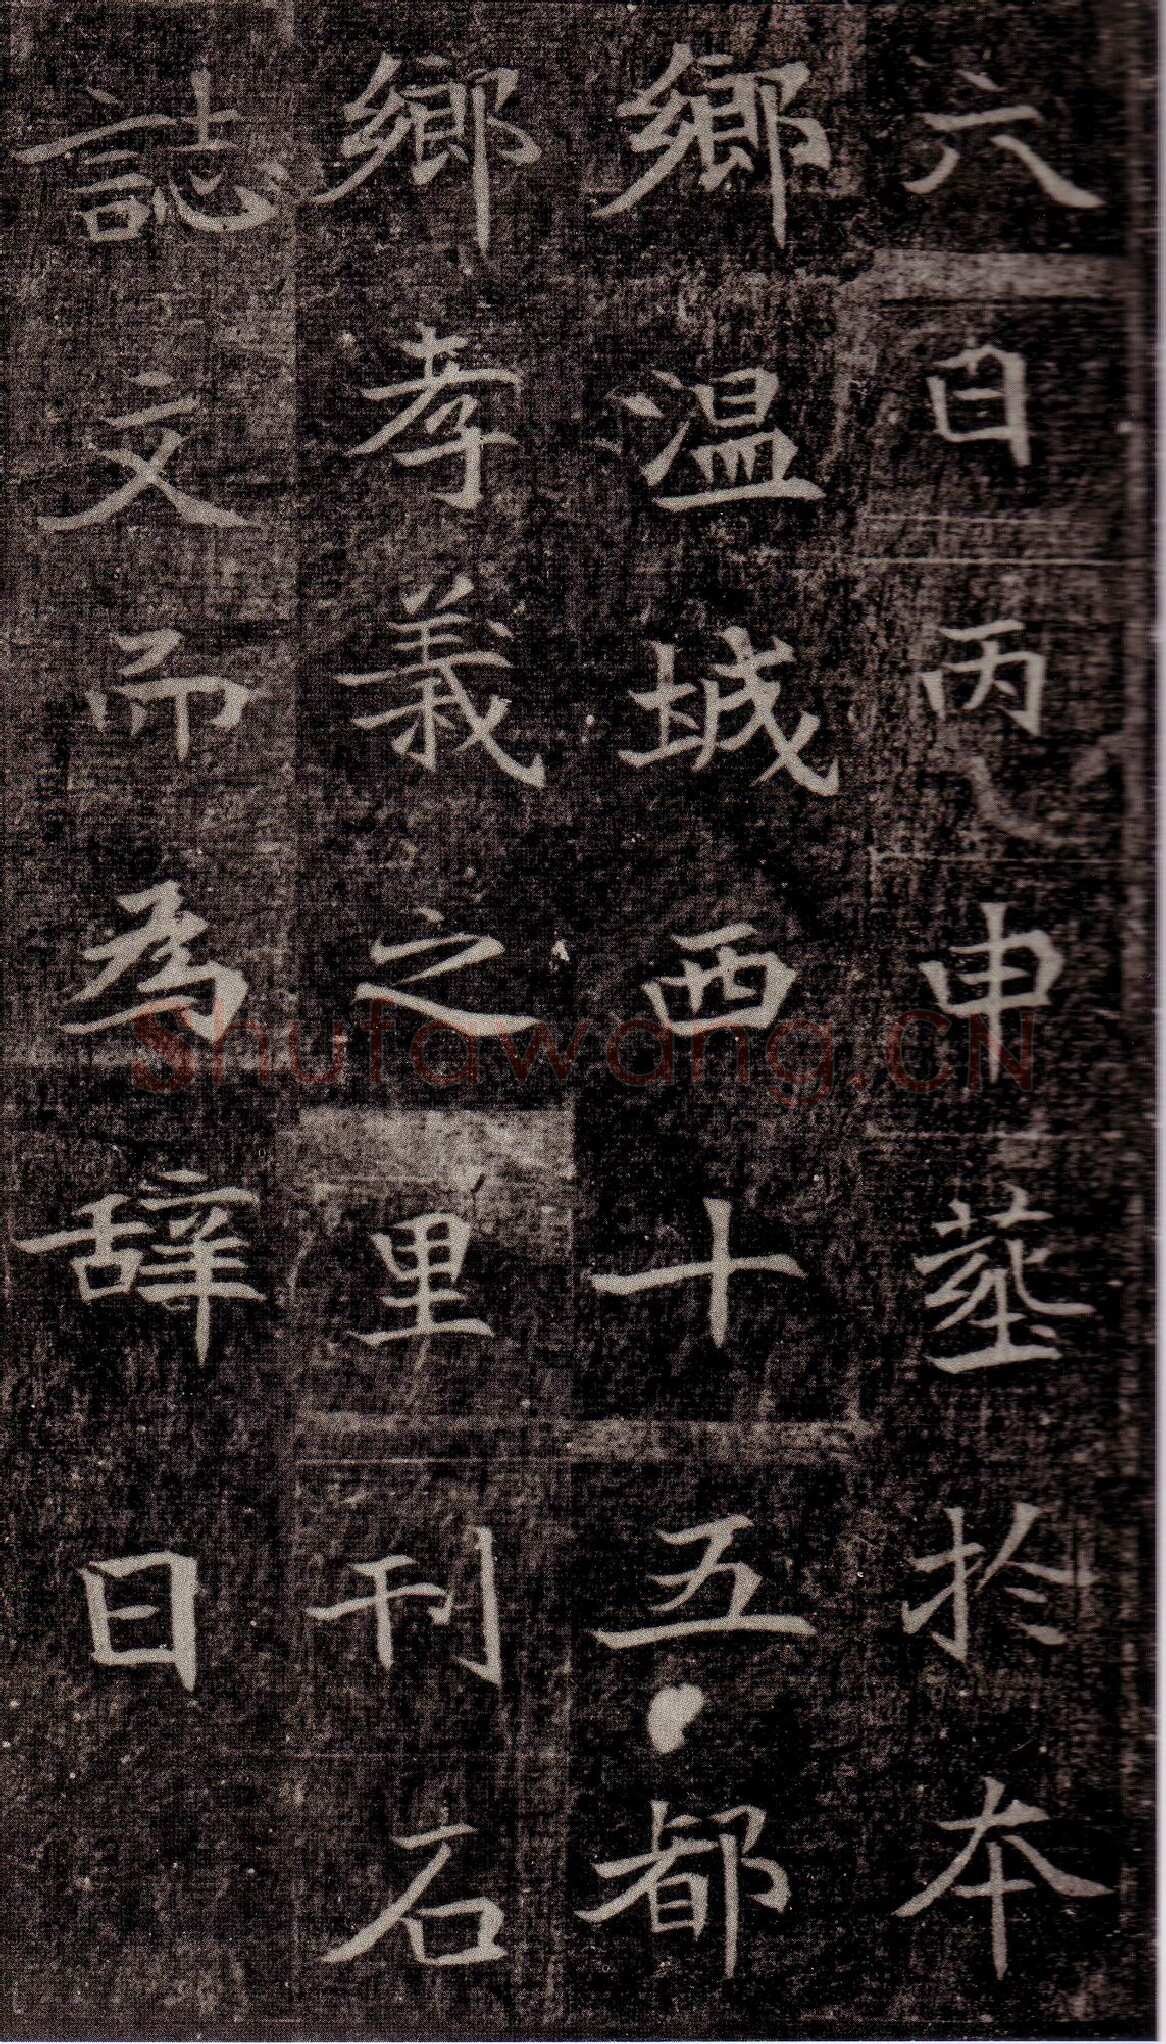 六日丙申葬於本
鄉温城西十五都
鄉孝義之里刊石
誌文而為辞曰
Shufawang.CN